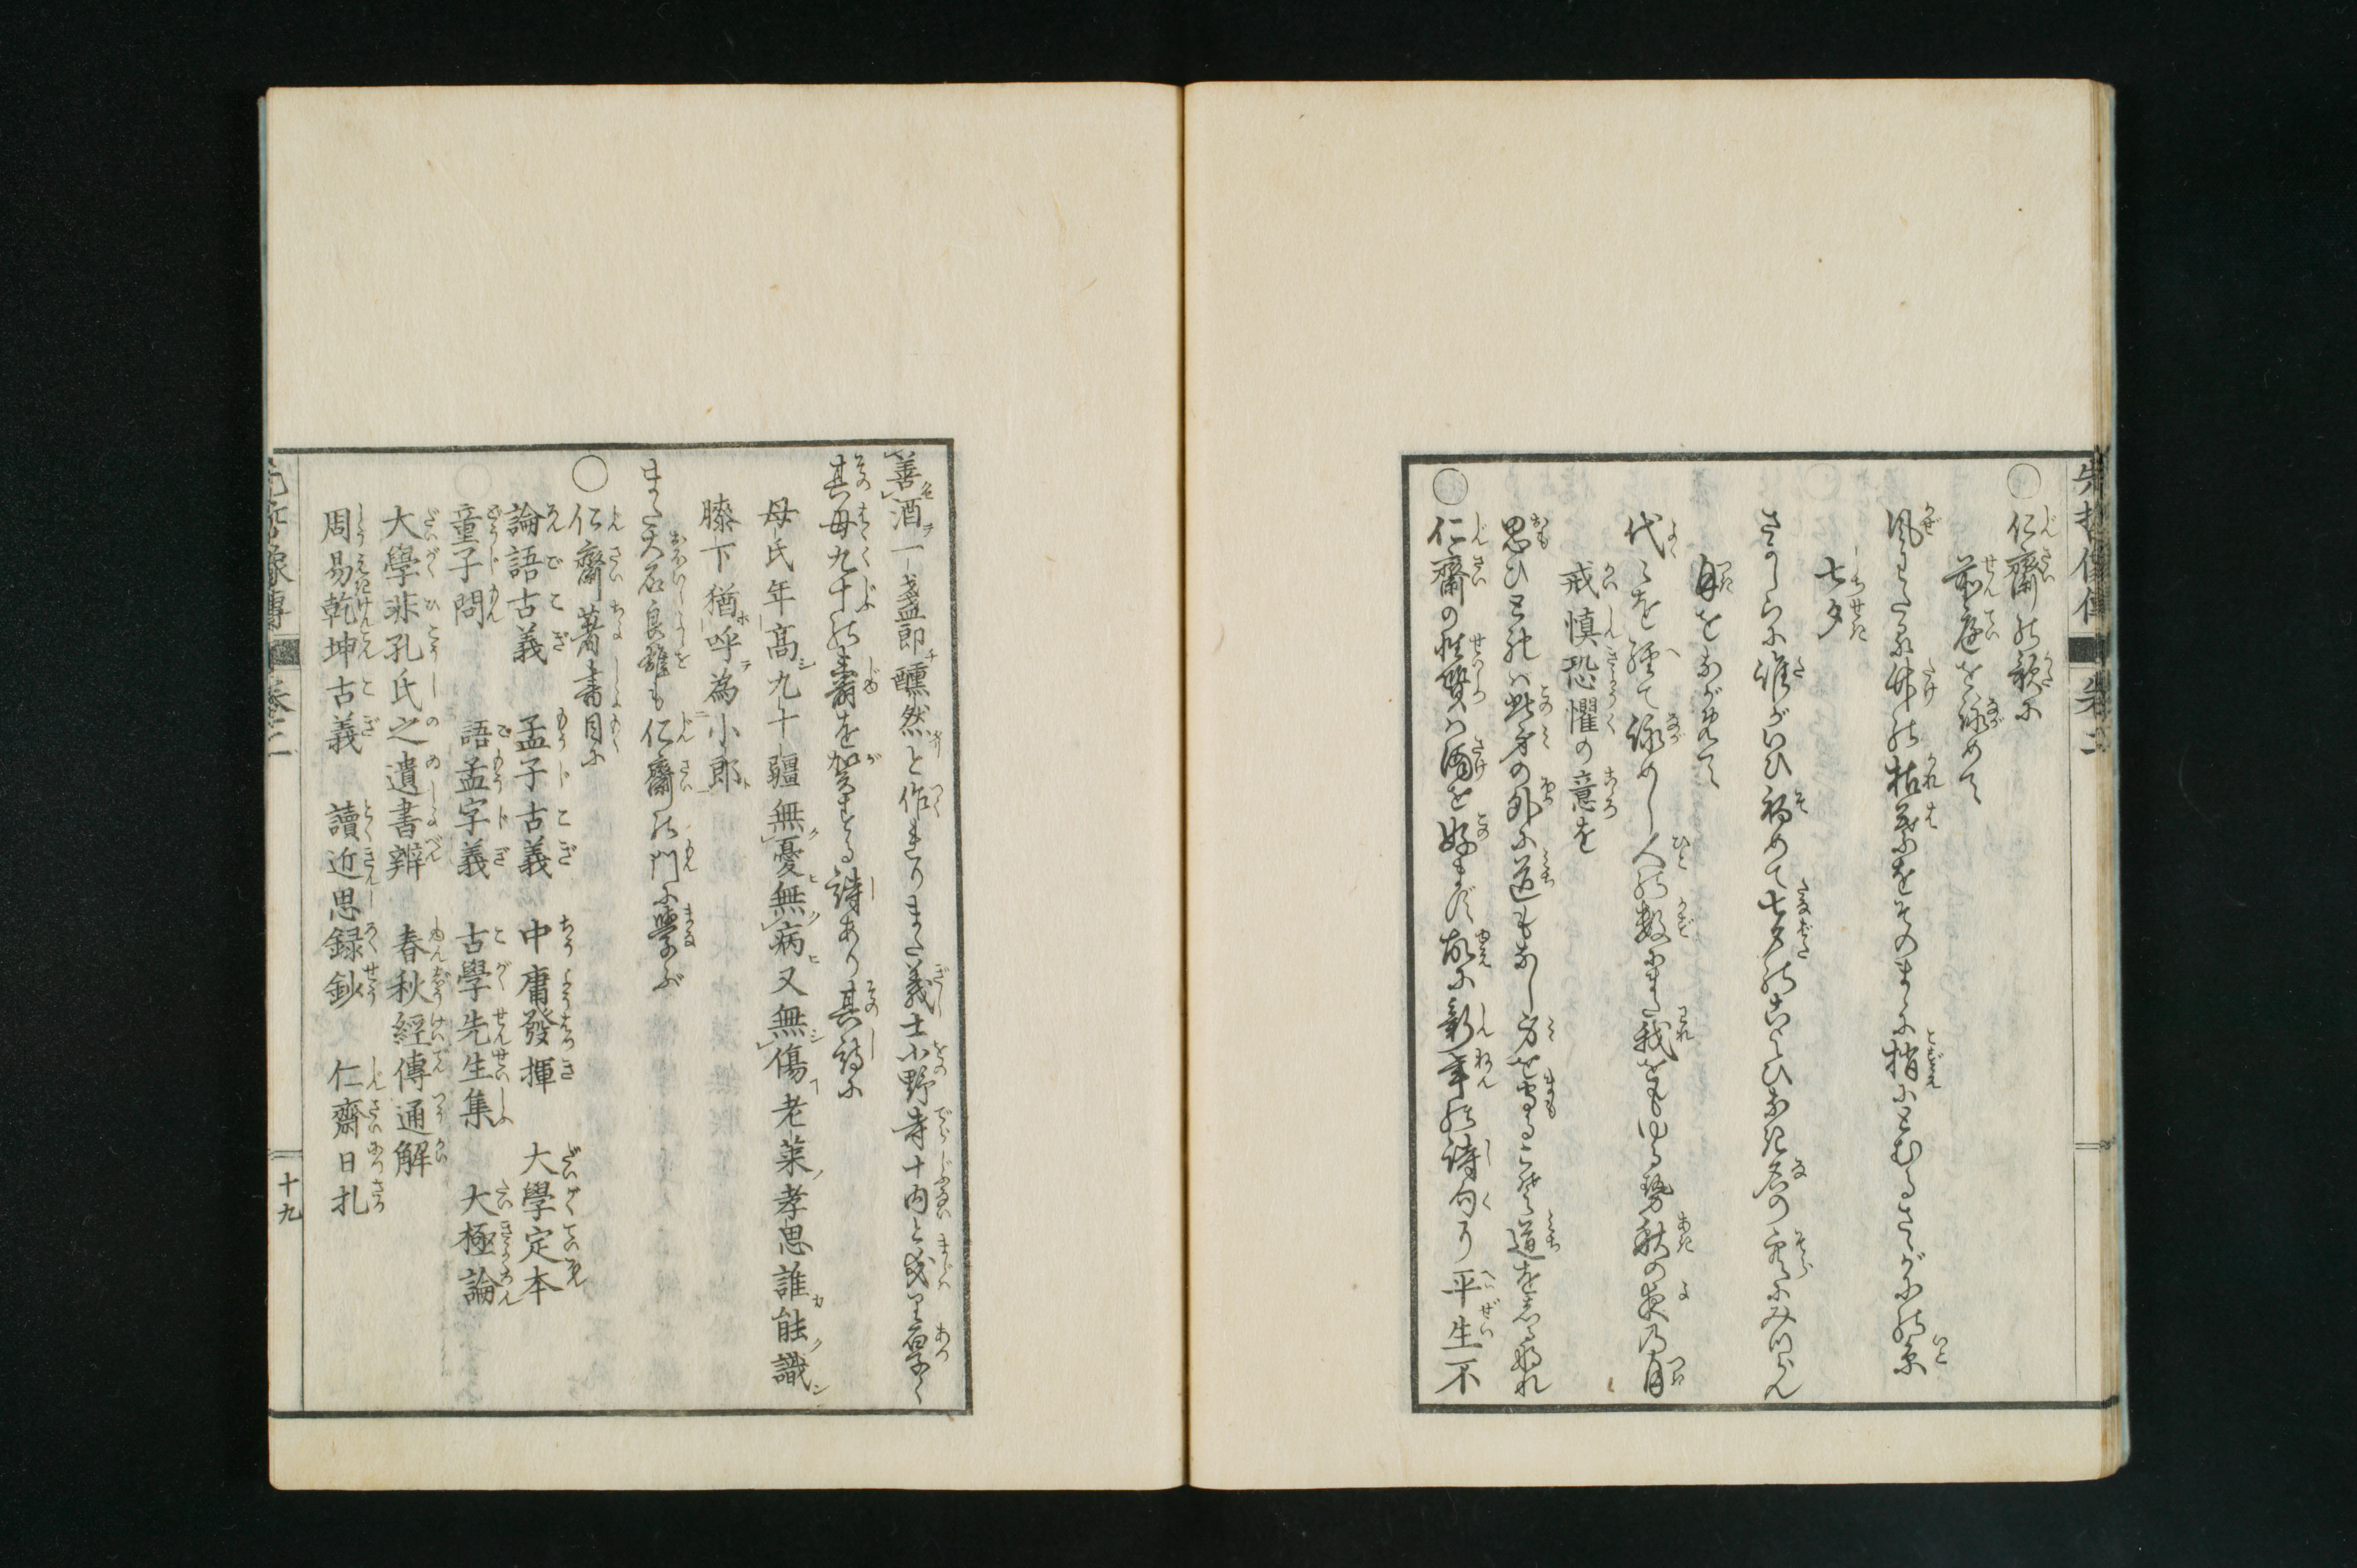 先哲像傳 巻二
○仁齋の歌に
前庭を詠めて
風わたる竹の枯葉をそのまゝに梢にとむるさゝがにの糸
七夕
さのみらに誰がいひ初めて七夕の
月をながめて
代々を經て詠めし人の數にまた我をも
秋の夜の月
戒慎恐懼の意を
思ひとれば此身の外に道もなし身を守るこそ道を
○仁齋の性質は酒を好まず故に新年の詩句に平生不
善酒一盞即醺然と作れりまた義士小野寺十内と
其母九十の壽を賀する詩あり其詩に
母氏年高九十疆無憂無病又無傷老莱孝思誰能識
膝下猶呼為小郎
また大石良雄も仁齋の門に學ぶ
○仁齋著書目に
論語古義 孟子古義 中庸發揮 大學定本
童子問 語孟字義 古學先生集 大極論
大學非孔氏之遺書辨 春秋經傳通解
周易乾坤古義 讀近思録鈔 仁齋日札
先哲像傳 巻二 十九